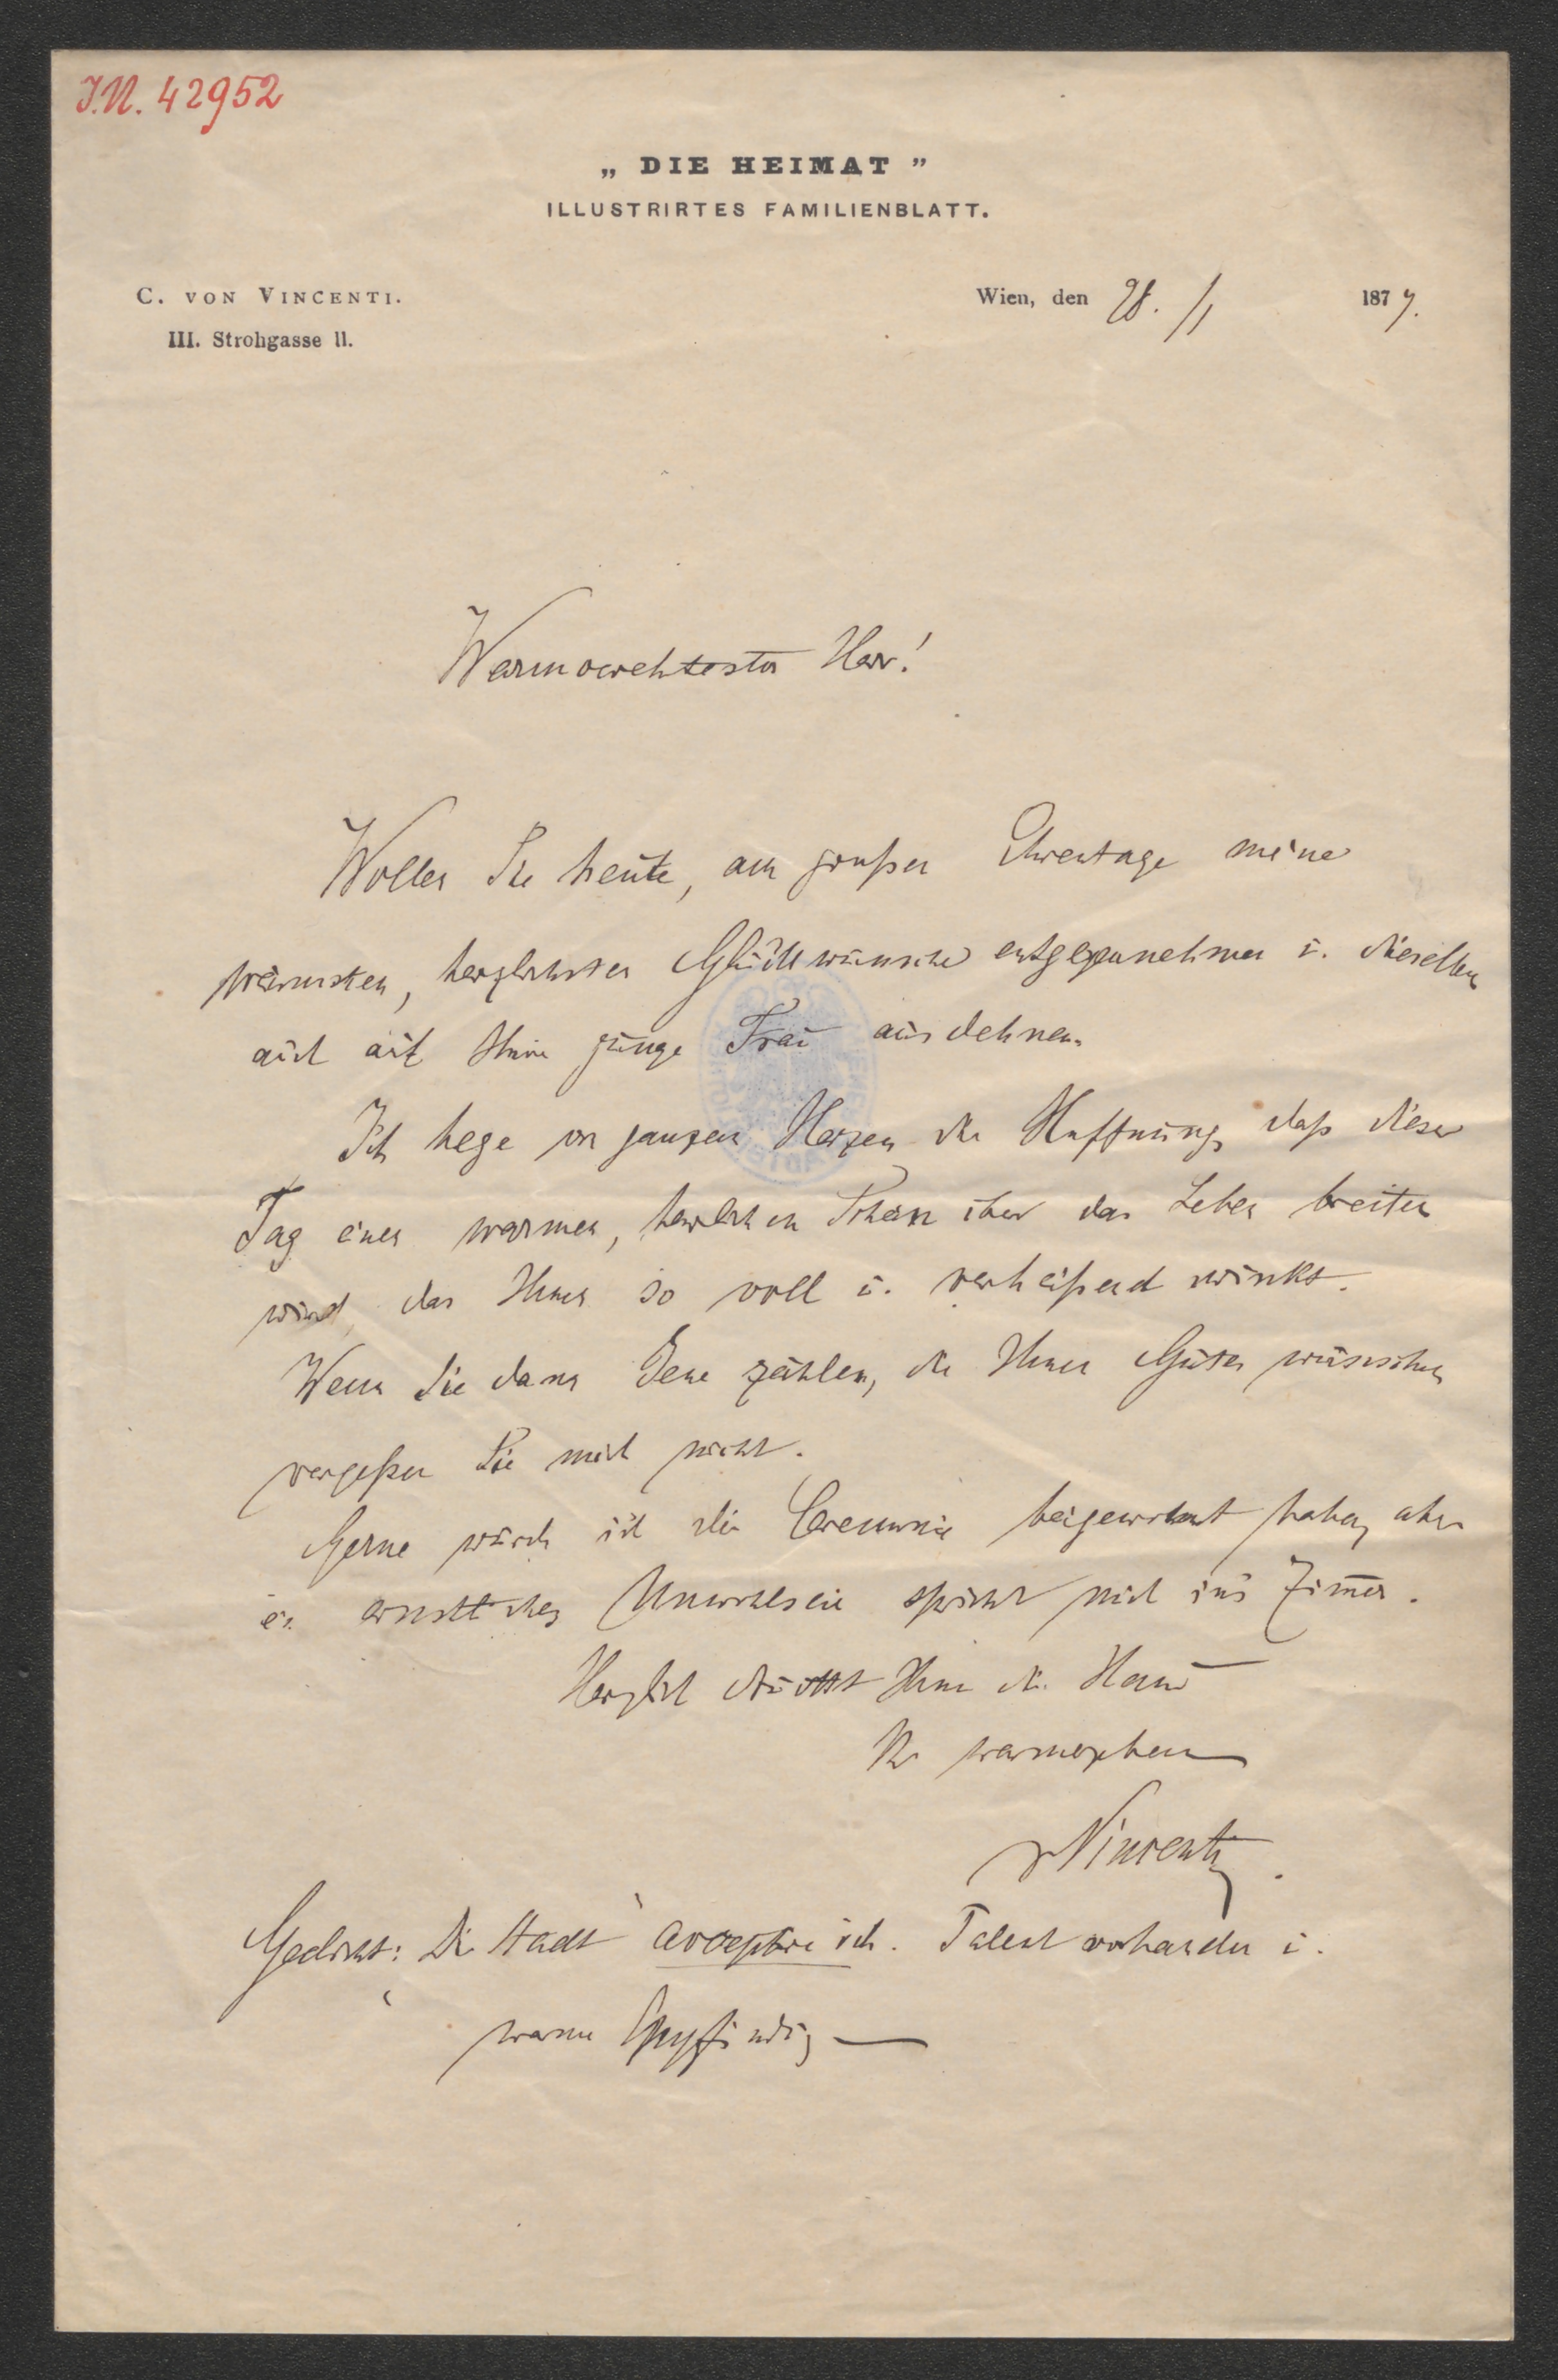 I.N. 42952
„ DIE HEIMAT ”
ILLUSTRIRTES FAMILIENBLATT.
C. VON VINCENTI.
III. Strohgasse 11.
Wien, den 28. /1 1879.
Warmverehrtester Herr!
Wollen Sie heute, am großen Ehrentage meine
wärmsten, herzlichsten Glückwünsche entgegennehmen u. dieselben
auch auf Ihre junge Frau ausdehnen.
Ich hege von ganzem Herzen die Hoffnung, daß dieser
Tag einen warmen, herrlichen Schein über das Leben breiten
wird, das Ihnen so voll u. verheißend winkt.
Wenn Sie dann Jene zählen, die Ihnen Gutes wünschen
vergeßen Sie mich nicht.
Gerne würde ich der Ceremonie beigewohnt haben, aber
ein ernstliches Unwohlsein spricht mich ins Zimmer.
Herzlich drückt Ihnen die Hand
Ihr warmergebener
vVincenti.
Gedicht: „Die Stadt“ acceptire ich. Talent vorhanden u.
warme Empfindung —